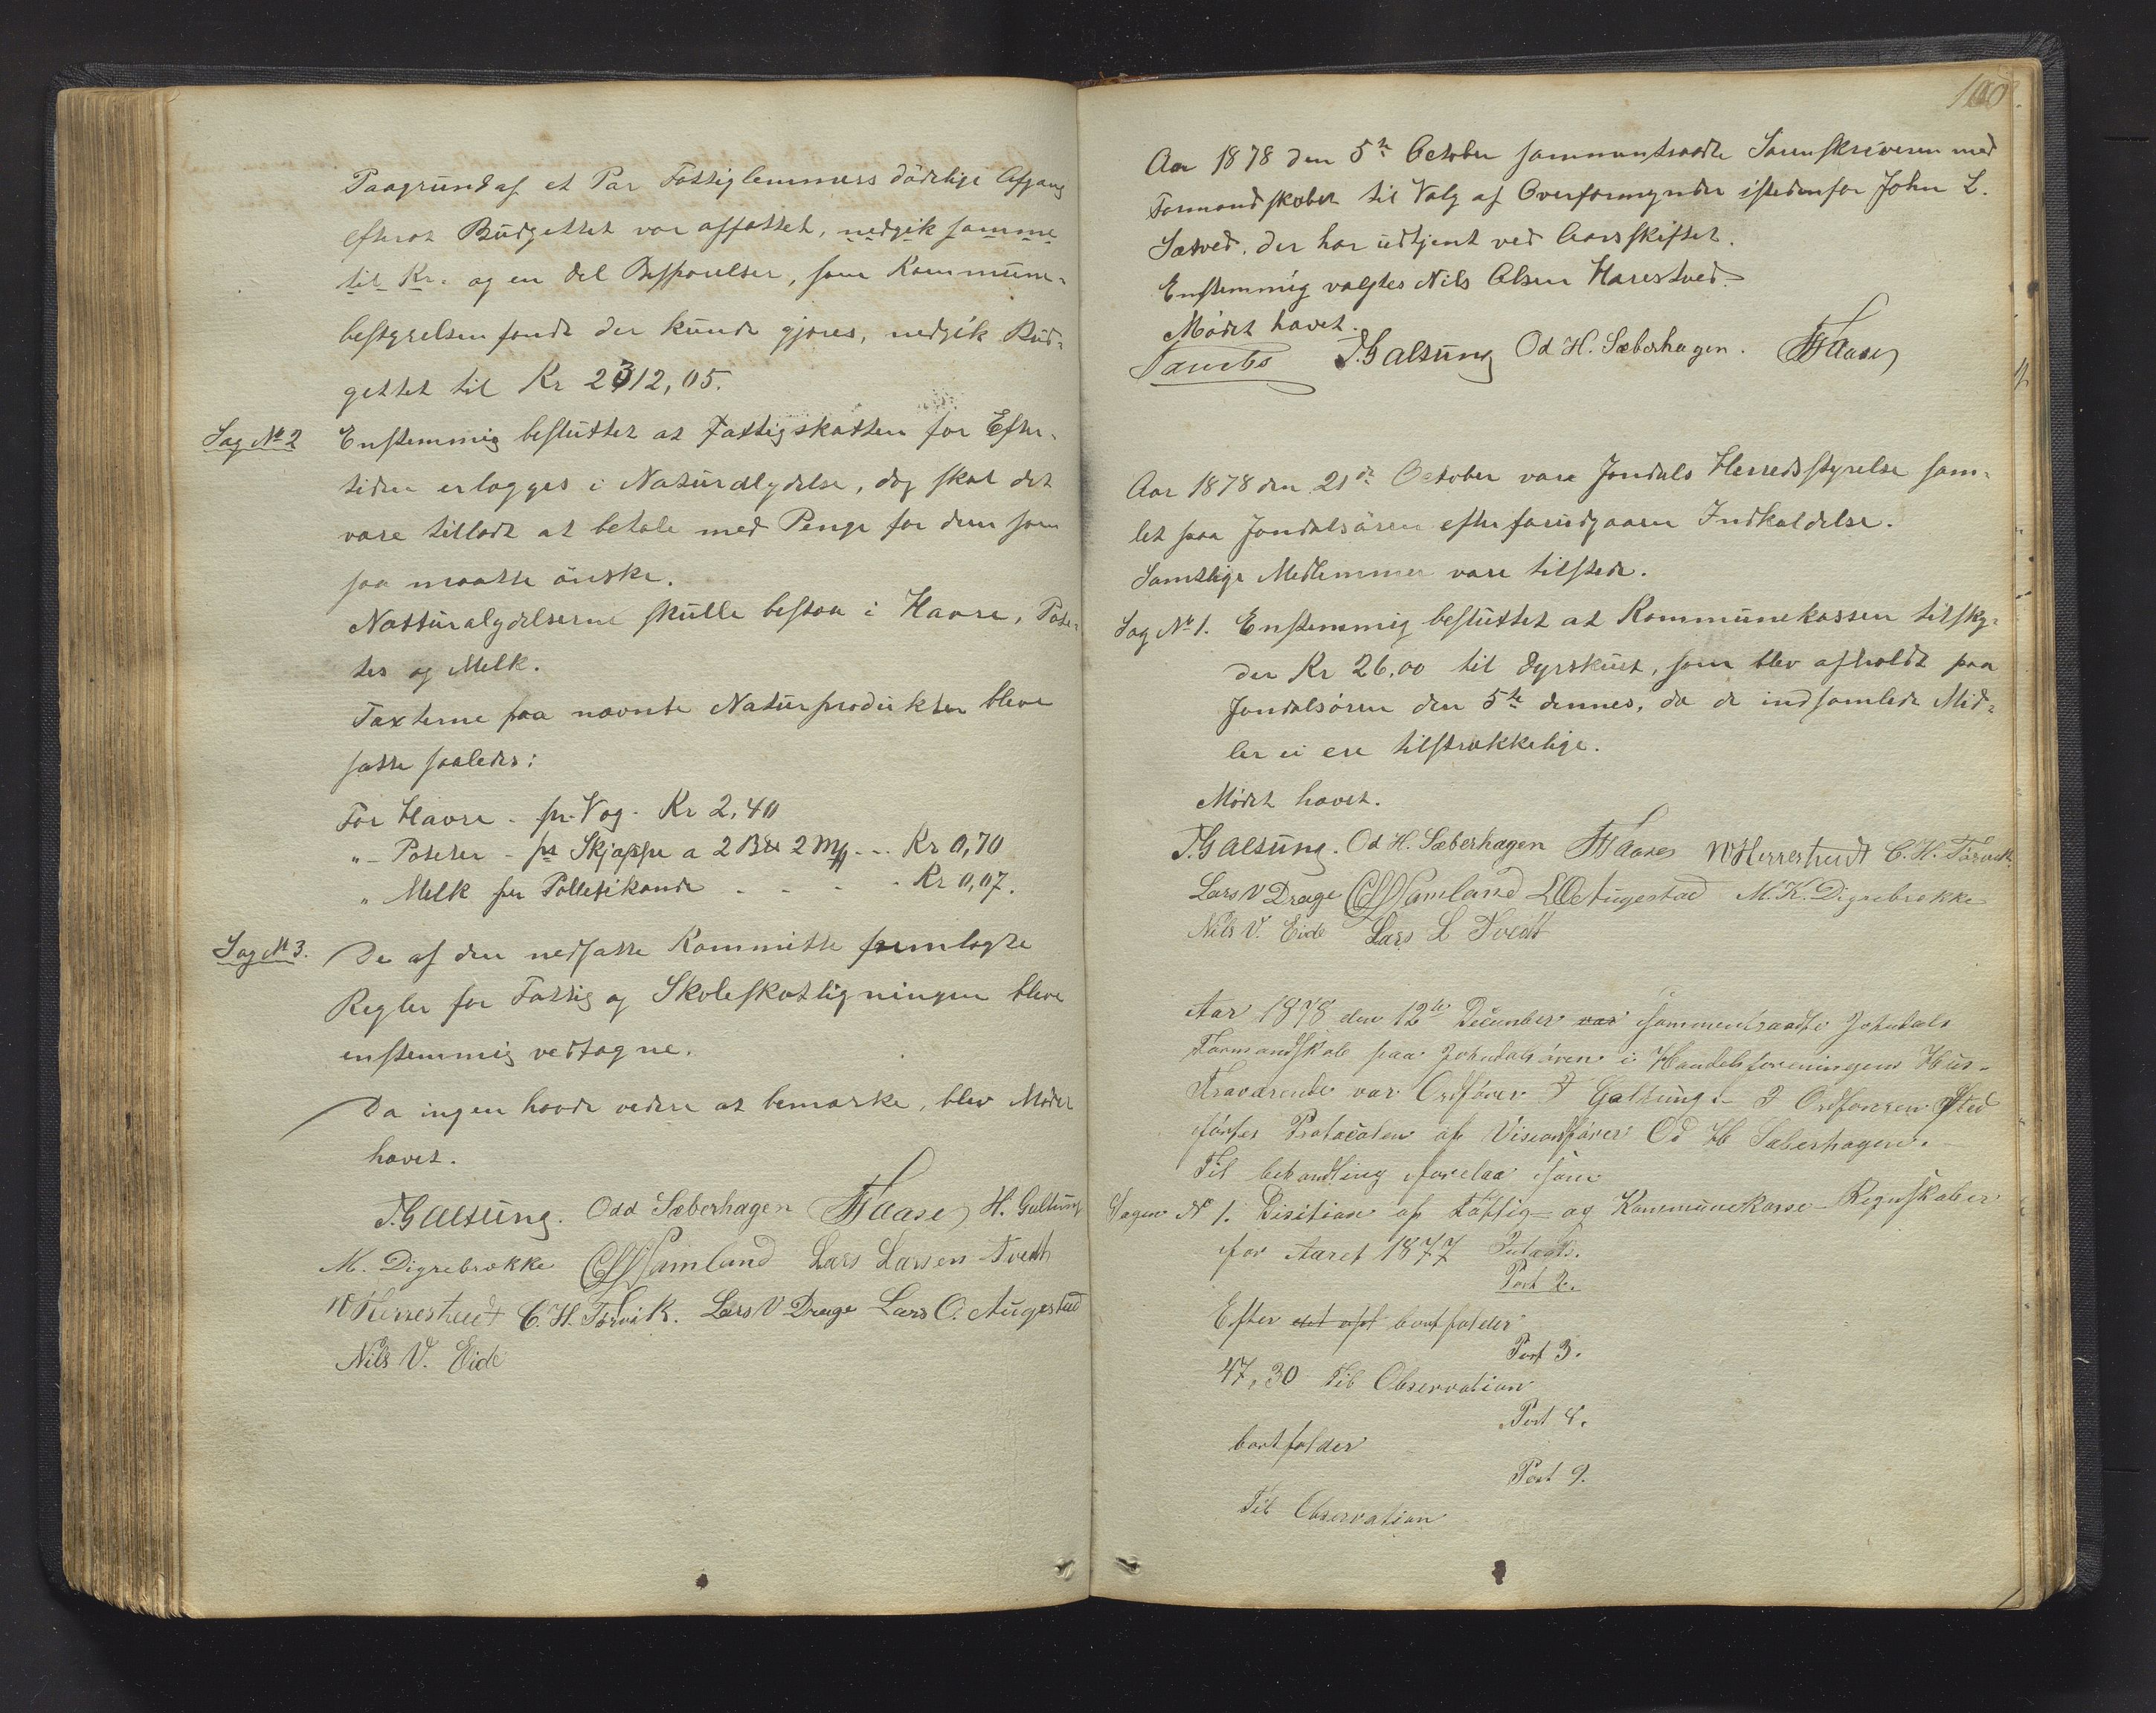 Paagrund af et Par Fattiglemmers dödelige Afgang
efterat Budgettet var affattet, nedgik samme
til Kr. og en Del Besparelser, som Kommune-
bestyrelsen fandt der kunde gjøres, nedgik Bud-
gettet til Kr 2312,05.
Sag No 2 Enstemmig besluttet at Fattigskatten for Efter-
tiden erlægges i Naturalydelse, dog skal det
være tilladt at betale med Penge for dem som
saa maatte önske.
Natturalydelserne skulle bestaa i Havre, Pote-
tes og Melk.
Taxterne paa nævnte Naturprodukter bleve
satte saaledes:
For Havre - pr. Vog - Kr 2,40
"- Poteter - pr Skjæppe a 2 2 Mg - - Kr 0,70
" Melk pr Pottesikande - - - - Kr 0,07.
Sag No 3. De af den nedsatte Kommitte fremlagte
Regler for Fattig og Skoleskatligningen bleve
enstemmig vedtagne.
Da ingen havde videre at bemærke, blev Mødet
hævet.
T. Galtung. Odd Sæberhagen Haase H. Galtung
M. Digrebrække Samland Lars Larsen Tvedt
N Herrestvedt C. H. Torvik. Lars V Drage Lars O. Augestad
Nils V. Eide
100.
Aar 1878 den 5te October sammentraadte Sorenskriveren med
Formandskabet til Valg af Overformynder istedenfor John L.
Sætved, der har udtjent ved Aarsskiftet.
Enstemmig valgtes Nils Olsen Harestved.
Mödet hævet.
T. Galtung Od H. Sæberhagen. Haase
Aar 1878 den 21de October vare Jondals Herredsstyrelse sam-
let paa Jondalsören efter forudgaaen Indkaldelse.
Samtlige Medlemmer vare tilstede.
Sag No 1. Enstemmig besluttet at Kommunekassen tilsky-
der Kr 26,00 til Dyrskuet, som blev afholdt paa
Jondalsören den 5te dennes, da de indsamlede Mid-
ler ei ere tilstrækkelige.
Mödet hævet.
T. Galtung. Od H. Sæberhagen Haase N Herrestvedt C. H. Torvik
Lars V Drage Samland L O Augestad M. K. Digrebrække
Nils V. Eide Lars L Tvedt
Aar 1878 den 12te December var sammentraadte Johndals
Formandskab paa Johndalsören i Handelsforeningens Hus-
Fraværende var Ordfører T Galtung. I Ordførerens Sted
førtes Protocolen af Viseordfører Od H Sæberhagen.
Til behandling forelaa som
Sagen No 1. Disition af Fattig- og Kommunekasse Regnskaber
for Aaret 1877 Indtægts.
Post 2.
Efter det af bortfalder
Post 3.
47,30 Til Observation
Post 8.
bortfalder
Post 9.
Til Observation